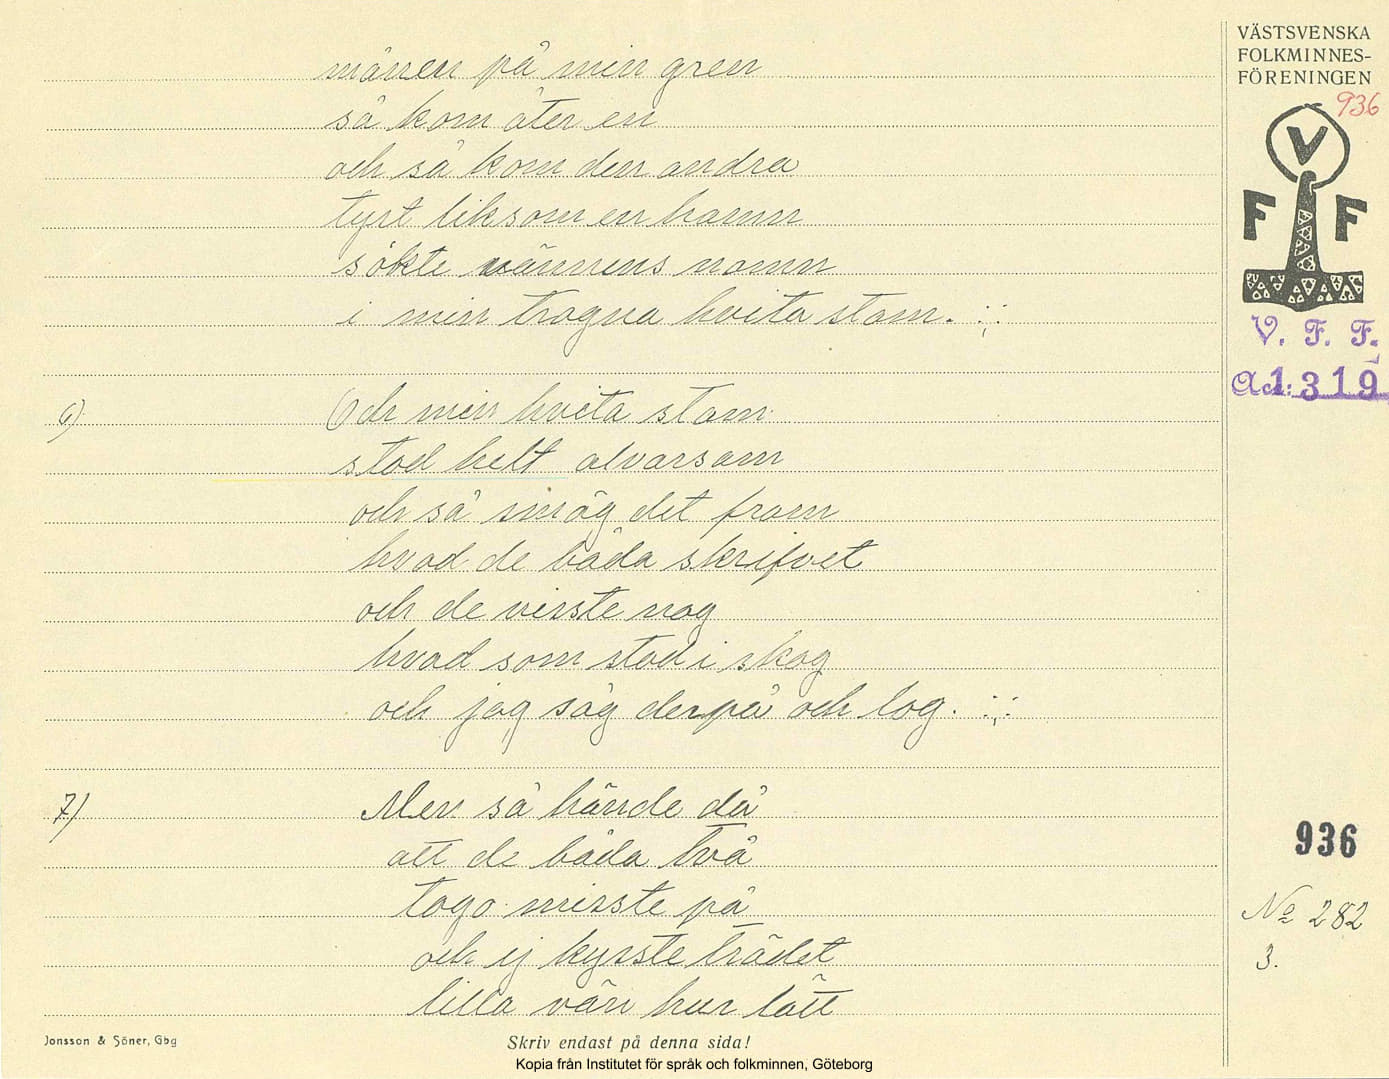 månen på min gren
så kom åter en
och så kom den andra
tyst liksom en hamn
sökte vännens namn
i min trogna hvita stam. :;:
6)
Och min hvita stam
stod helt alvarsam
och så smög det fram
hvad de båda skrifvet
och de visste nog
hvad som stod i skog
och jag såg derpå och log. :;:
7)
Men så hände då
att de båda två
togo misste på
och ej kysste trädet
lilla vän hur lätt
VÄSTSVENSKA
FOLKMINNES-
FÖRENINGEN
936
V
F F
V. F. F.
Acc: 1319
936
No 282
3.
Jonsson & Söner, Gbg
Skriv endast på denna sida!
Kopia från Institutet för språk och folkminnen, Göteborg